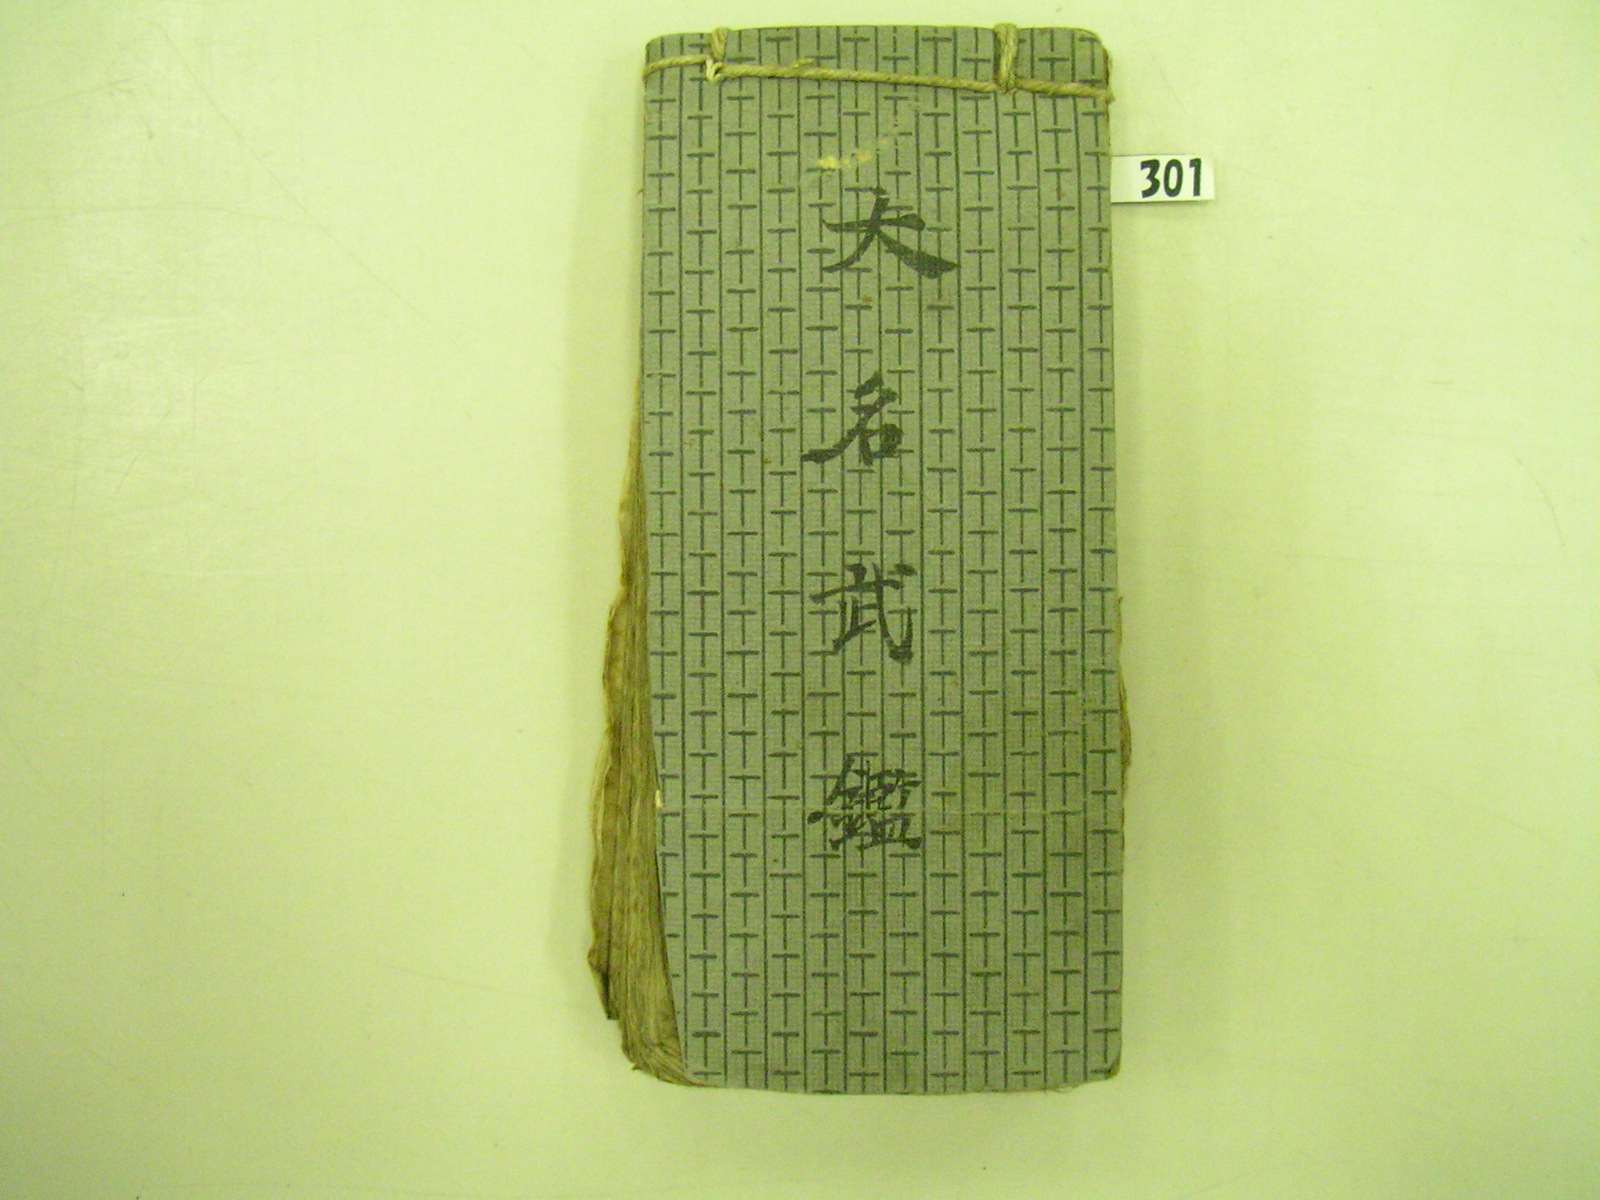 大名武鑑
301